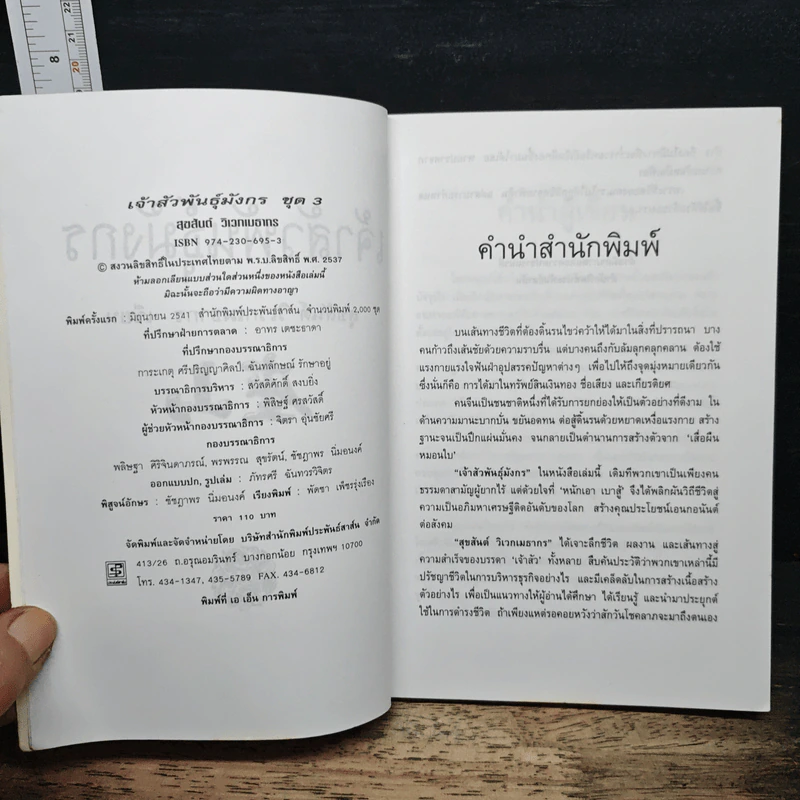 8
20
21
22
เจ้าสัวพันธุ์มังกร ชุด 3
สุขสันต์ วิเวกเมธากร
ISBN 974-230-695-3
© สงวนลิขสิทธิ์ในประเทศไทยตาม พ.ร.บ.ลิขสิทธิ์ พ.ศ. 2537
ห้ามลอกเลียนแบบส่วนใดส่วนหนึ่งของหนังสือเล่มนี้
มิฉะนั้นจะถือว่ามีความผิดทางอาญา
พิมพ์ครั้งแรก : มิถุนายน 2541 สำนักพิมพ์ประพันธ์สาส์น จำนวนพิมพ์ 2,000 ชุด
ที่ปรึกษาฝ่ายการตลาด : อาทร เตชะธาดา
ที่ปรึกษากองบรรณาธิการ
การะเกตุ ศรีปริญญาศิลป์, ฉันทลักษณ์ รักษาอยู่
บรรณาธิการบริหาร : สวัสดิศักดิ์ สงบยิ่ง
หัวหน้ากองบรรณาธิการ : พิสิษฐ์ ศรสวัสดิ์
ผู้ช่วยหัวหน้ากองบรรณาธิการ : จิตรา อุ่นชัยศรี
กองบรรณาธิการ
พลิษฐา ศิริจินดาภรณ์, พรพรรณ สุขรัตน์, ชัชฎาพร นิ่มอนงค์
ออกแบบปก, รูปเล่ม : ภัทรศรี ฉันทวรวิจิตร
พิสูจน์อักษร : ชัชฎาพร นิ่มอนงค์ เรียงพิมพ์ : พัดชา เพ็ชรรุ่งเรือง
ราคา 110 บาท
จัดพิมพ์และจัดจำหน่ายโดย บริษัทสำนักพิมพ์ประพันธ์สาส์น จำกัด
413/26 ถ.อรุณอมรินทร์ บางกอกน้อย กรุงเทพฯ 10700
โทร. 434-1347, 435-5789 FAX. 434-6812
พิมพ์ที่ เอ เอ็น การพิมพ์
คำนำสำนักพิมพ์
บนเส้นทางชีวิตที่ต้องดิ้นรนไขว่คว้าให้ได้มาในสิ่งที่ปรารถนา บาง
คนก้าวถึงเส้นชัยด้วยความราบรื่น แต่บางคนถึงกับล้มลุกคลุกคลาน ต้องใช้
แรงกายแรงใจฟันฝ่าอุปสรรคปัญหาต่างๆ เพื่อไปให้ถึงจุดมุ่งหมายเดียวกัน
ซึ่งนั่นก็คือ การได้มาในทรัพย์สินเงินทอง ชื่อเสียง และเกียรติยศ
คนจีนเป็นชนชาติหนึ่งที่ได้รับการยกย่องให้เป็นตัวอย่างที่ดีงาม ใน
ด้านความมานะบากบั่น ขยันอดทน ต่อสู้ดิ้นรนด้วยหยาดเหงื่อแรงกาย สร้าง
ฐานะจนเป็นปึกแผ่นมั่นคง จนกลายเป็นตำนานการสร้างตัวจาก 'เสื่อผืน
หมอนใบ'
"เจ้าสัวพันธุ์มังกร" ในหนังสือเล่มนี้ เดิมทีพวกเขาเป็นเพียงคน
ธรรมดาสามัญผู้ยากไร้ แต่ด้วยใจที่ 'หนักเอา เบาสู้' จึงได้พลิกผันวิถีชีวิตสู่
ความเป็นอภิมหาเศรษฐีติดอันดับของโลก สร้างคุณประโยชน์เอนกอนันต์
ต่อสังคม
"สุขสันต์ วิเวกเมธากร" ได้เจาะลึกชีวิต ผลงาน และเส้นทางสู่
ความสำเร็จของบรรดา 'เจ้าสัว' ทั้งหลาย สืบค้นประวัติว่าพวกเขาเหล่านี้มี
ปรัชญาชีวิตในการบริหารธุรกิจอย่างไร และมีเคล็ดลับในการสร้างเนื้อสร้าง
ตัวอย่างไร เพื่อเป็นแนวทางให้ผู้อ่านได้ศึกษา ได้เรียนรู้ และนำมาประยุกต์
ใช้ในการดำรงชีวิต ถ้าเพียงแหต่รอคอยหวังว่าสักวันโชคลาภจะมาถึงตนเอง